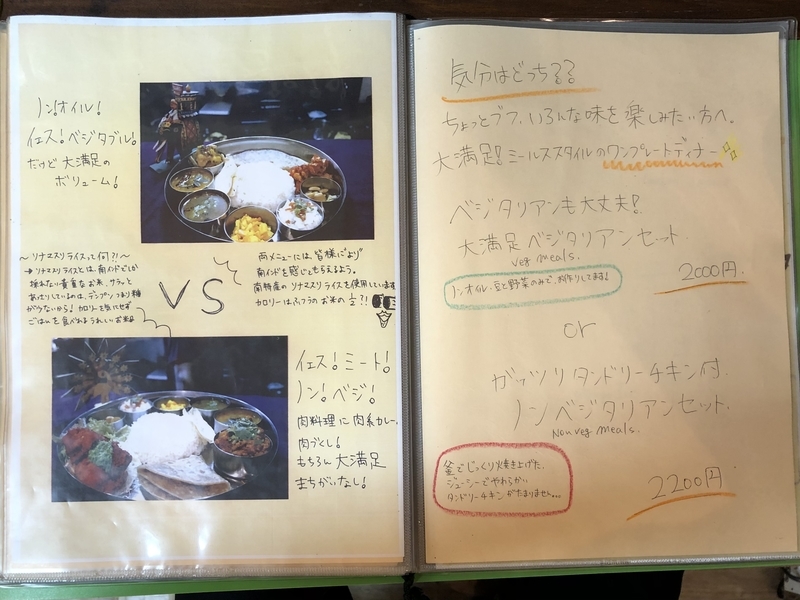 ノン!オイル!
イエス!ベジタブル!
だけど大満足の
ボリューム!
〜ソナマスリライスって何?!〜
→ソナマスリライスとは、南インドでしか
採れない貴重なお米。サラッと
あっさりしているのは、デンプンつまり糖
が少ないから!カロリーを気にせず
ごはんを食べれるうれしいお米
VS
両メニューには、皆様により
南インドを感じてもらえるよう。
南特産のソナマスリライスを使用しています
カロリーはふつうのお米の1/2?!
イエス!ミート!
ノン!ベジ!
肉料理に肉系カレー。
肉づくし!
もちろん大満足
まちがいなし!
気分はどっち??
ちょっとづつ、いろんな味を楽しみたい方へ。
大満足!ミールススタイルのワンプレートディナー
ベジタリアンも大丈夫!
大満足ベジタリアンセット.
veg meals.
2000円.
ノンオイル・豆と野菜のみで、お作りしてます!
or
ガッツリタンドリーチキン付.
ノンベジタリアンセット.
Non veg meals.
2200円
釜でじっくり焼き上げた、
ジューシーでやわらかい
タンドリーチキンがたまりません...